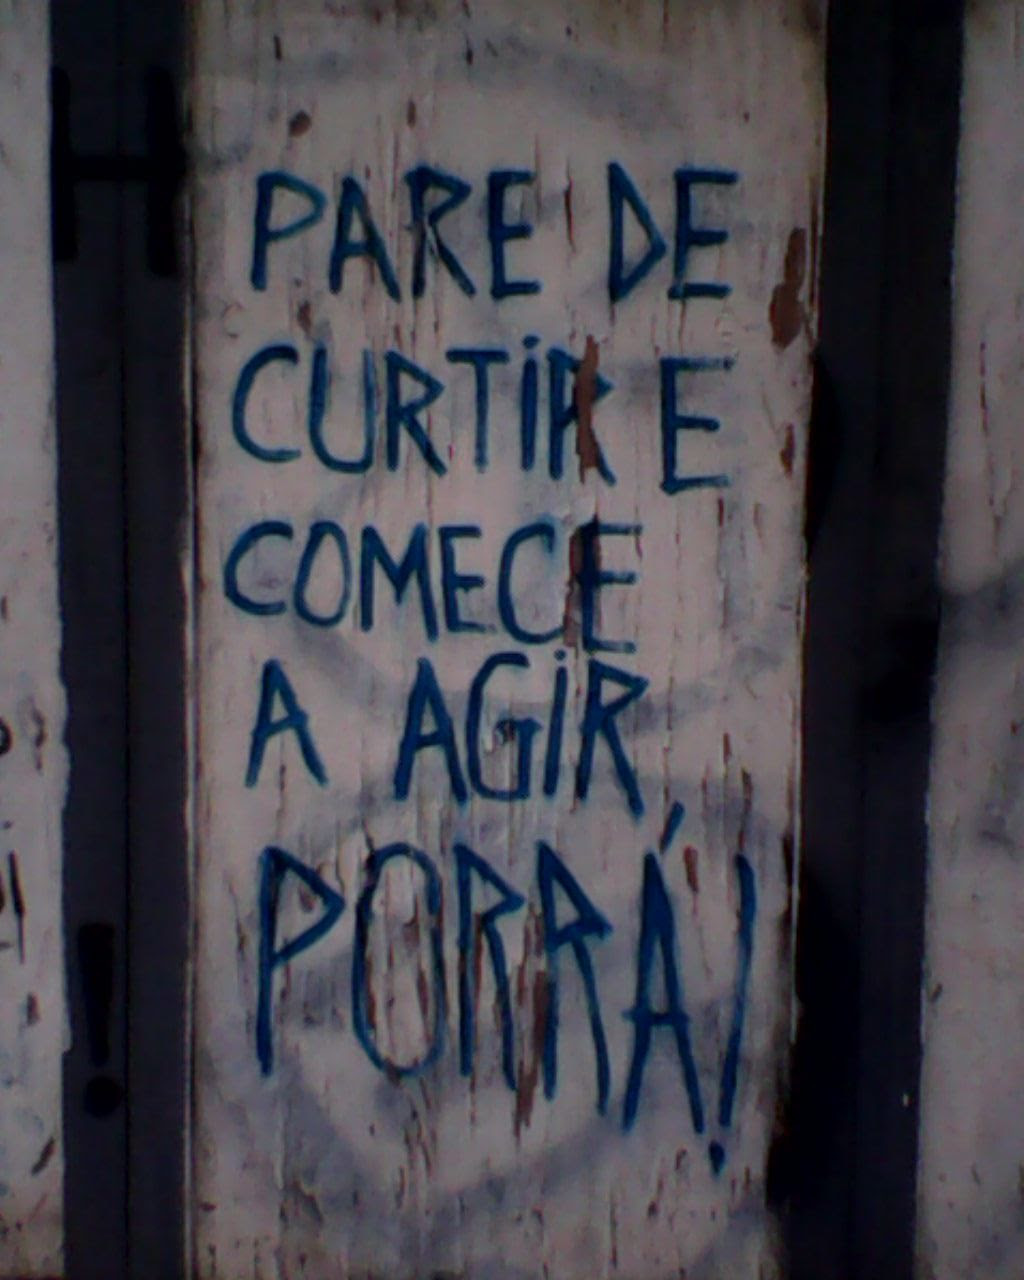 PARE DE
CURTIR E
COMECE
A AGIR,
PORRÁ!